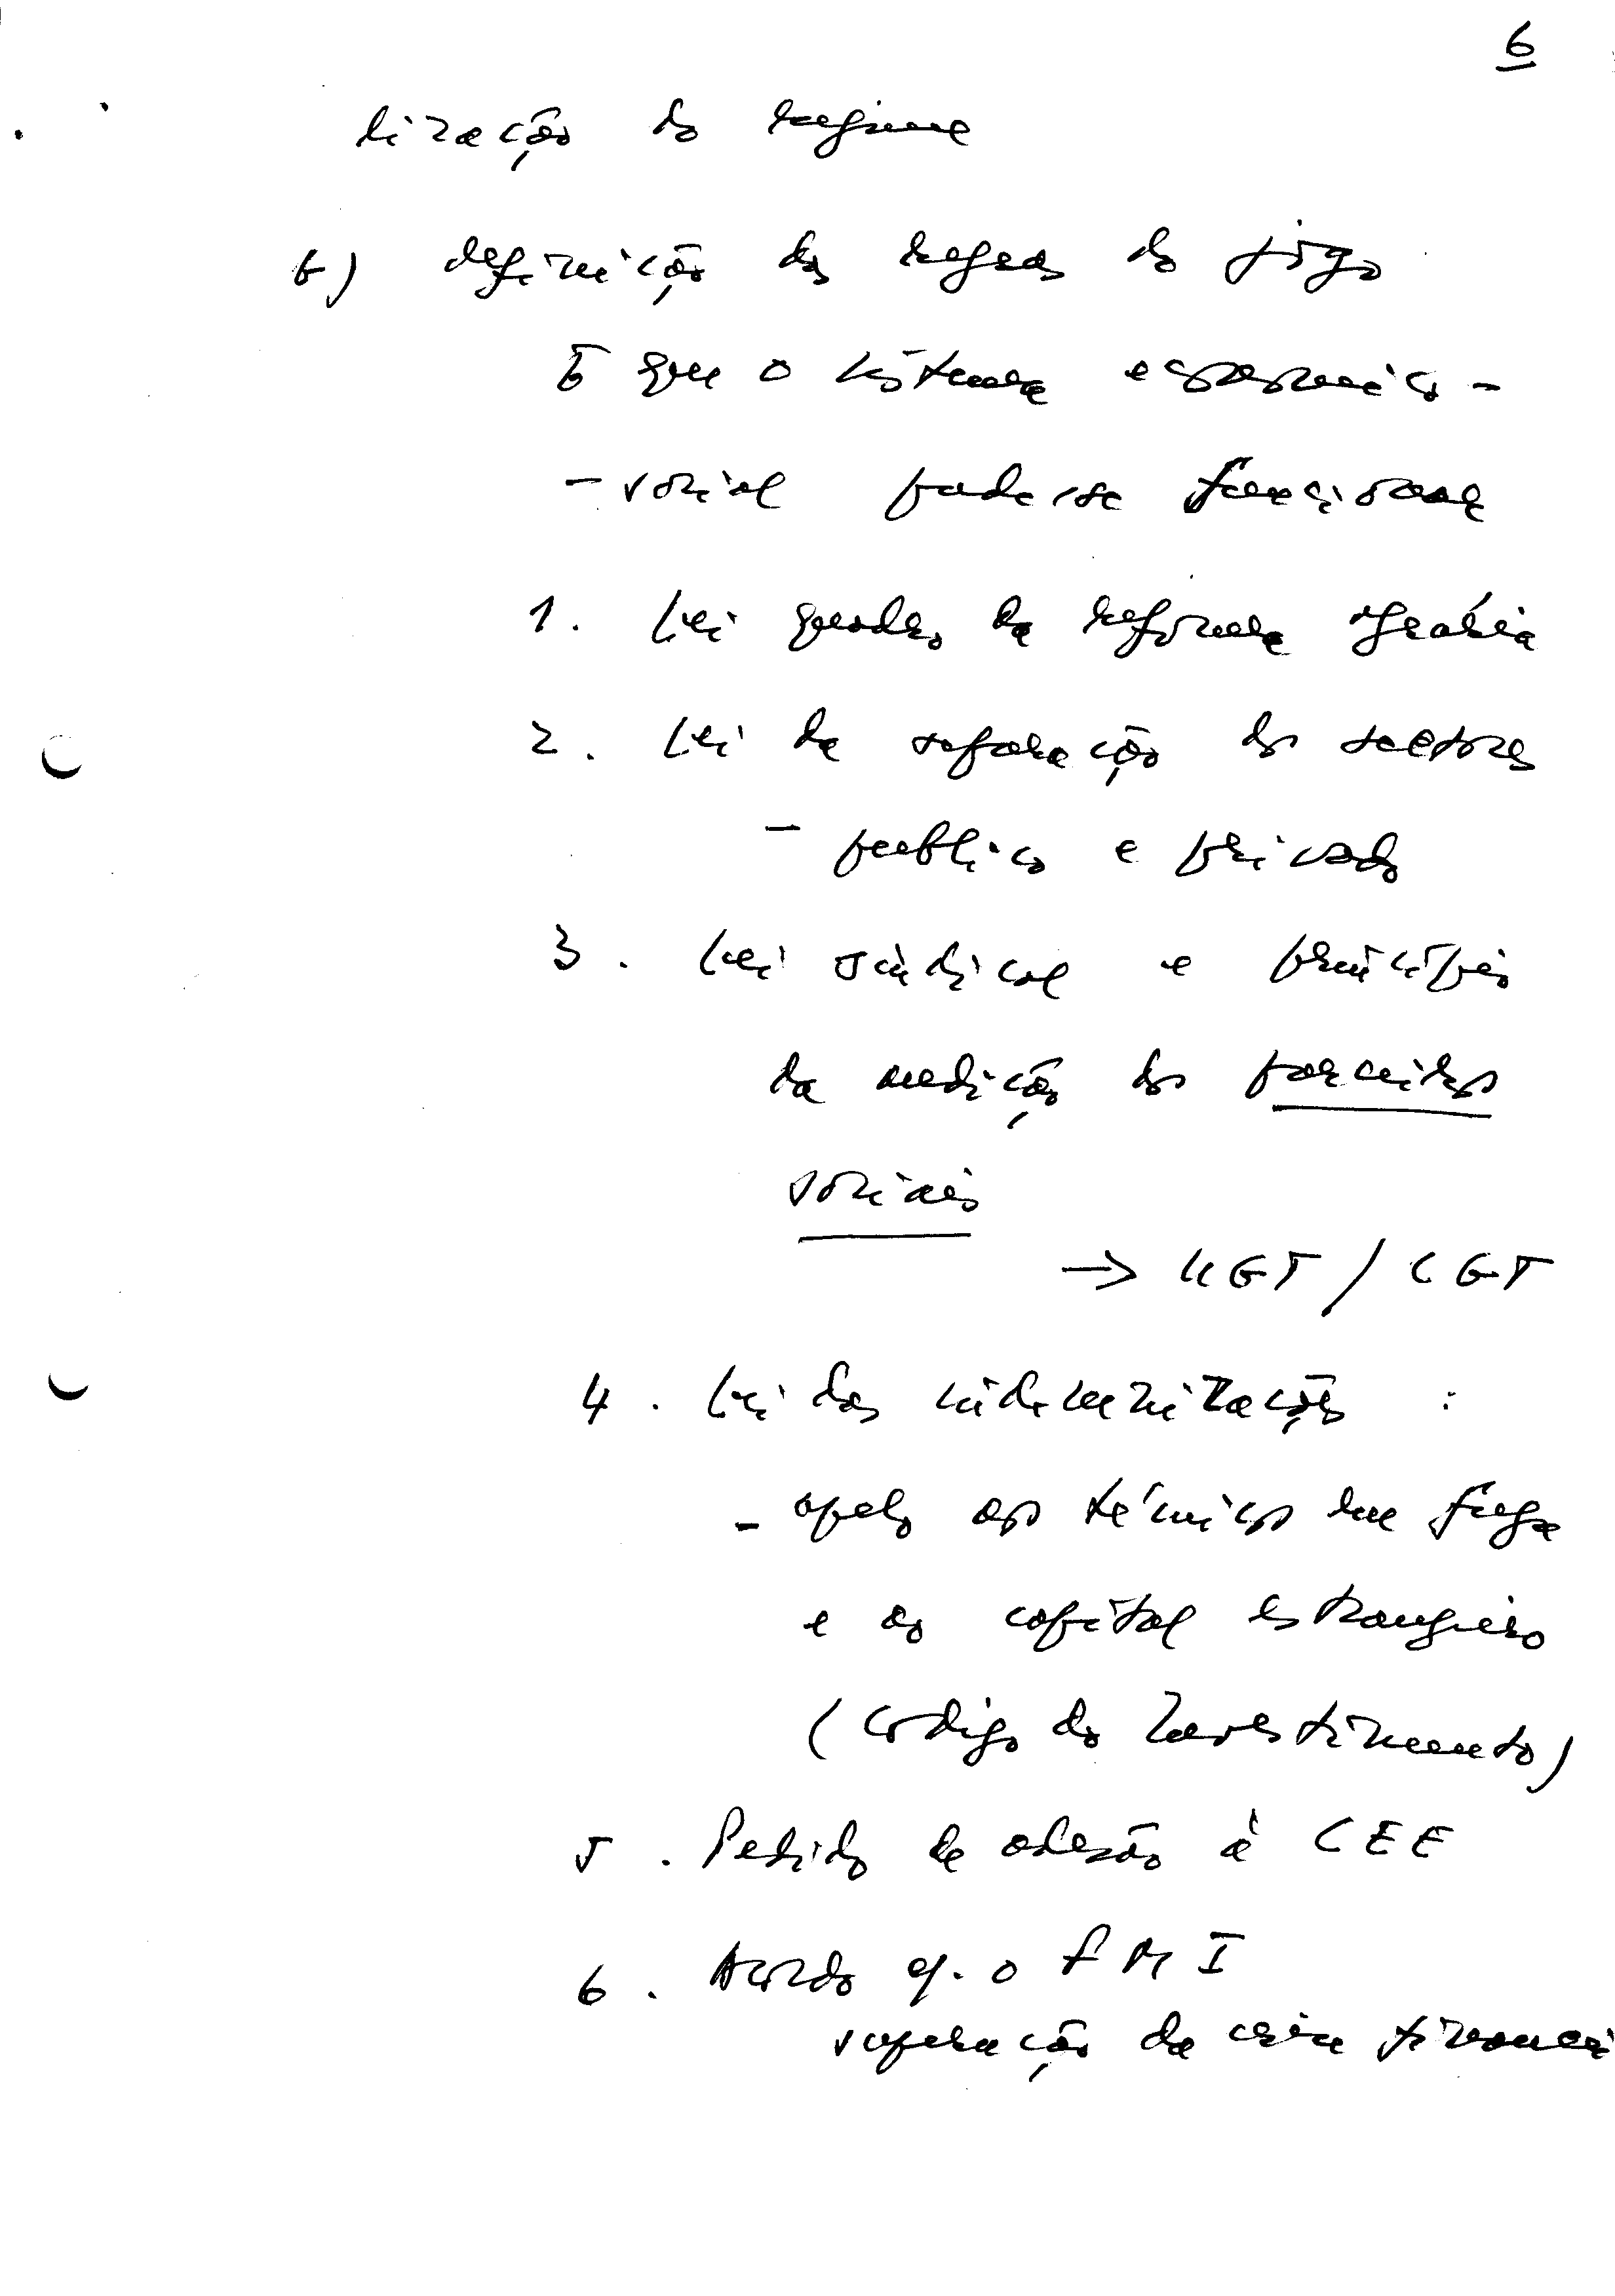 6
lização do regime
b) definição das regras do jogo
E que o sistema económico-
-social pudesse funcionar
1. Lei quadro da reforma agrária
2. Lei da separação dos sectores
- publico e privado
3. Lei sindical e princípios
da medição dos parceiros
sociais
→ UGT / CGT
4. Lei das indemnizações :
- apelo aos técnicos em fuga
e ao capital estrangeiro
(Codigo do Investimento)
5. Pedido de adesão à CEE
6. Acordo c/. o FMI
superação da crise financei